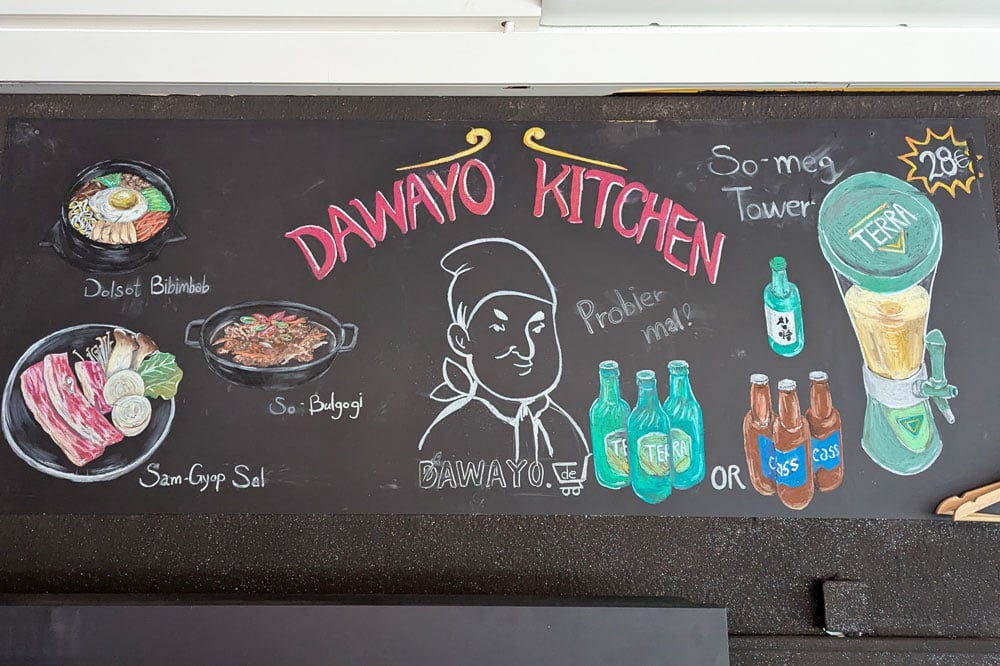 DAWAYO KITCHEN
So-meg
Tower
28€
TERRA
Dolsot Bibimbab
Probier
mal!
So-Bulgogi
Sam-Gyop Sal
DAWAYO.de
TERRA
TERRA
OR
Cass
Cass